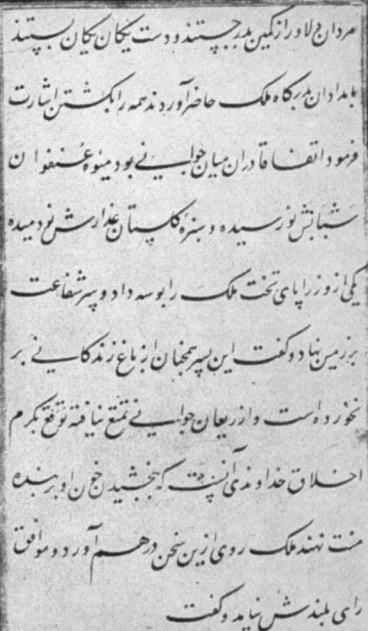 مردان دلاور از کمین بدر جستند و دست یکان یکان بستند
بامدادان بدرگاه ملک حاضر آوردند همه را بکشتن اشارت
فرمود اتفاقا دران میان جوانی بود میوهٔ عنفوان
شبابش نو رسیده و سبزهٔ گلستان عذارش نو دمیده
یکی از وزرا پای تخت ملک را بوسه داد و سر شفاعت
بر زمین نهاد و گفت این پسر همچنان از باغ زندگانی بر
نخورده است و از ریعان جوانی تمتع نیافته توقع بکرم
اخلاق خداوندی آنست که ببخشیدن خون او بر بنده
منت نهند ملک روی ازین سخن درهم آورد و موافق
رای بلندش نیامد و گفت